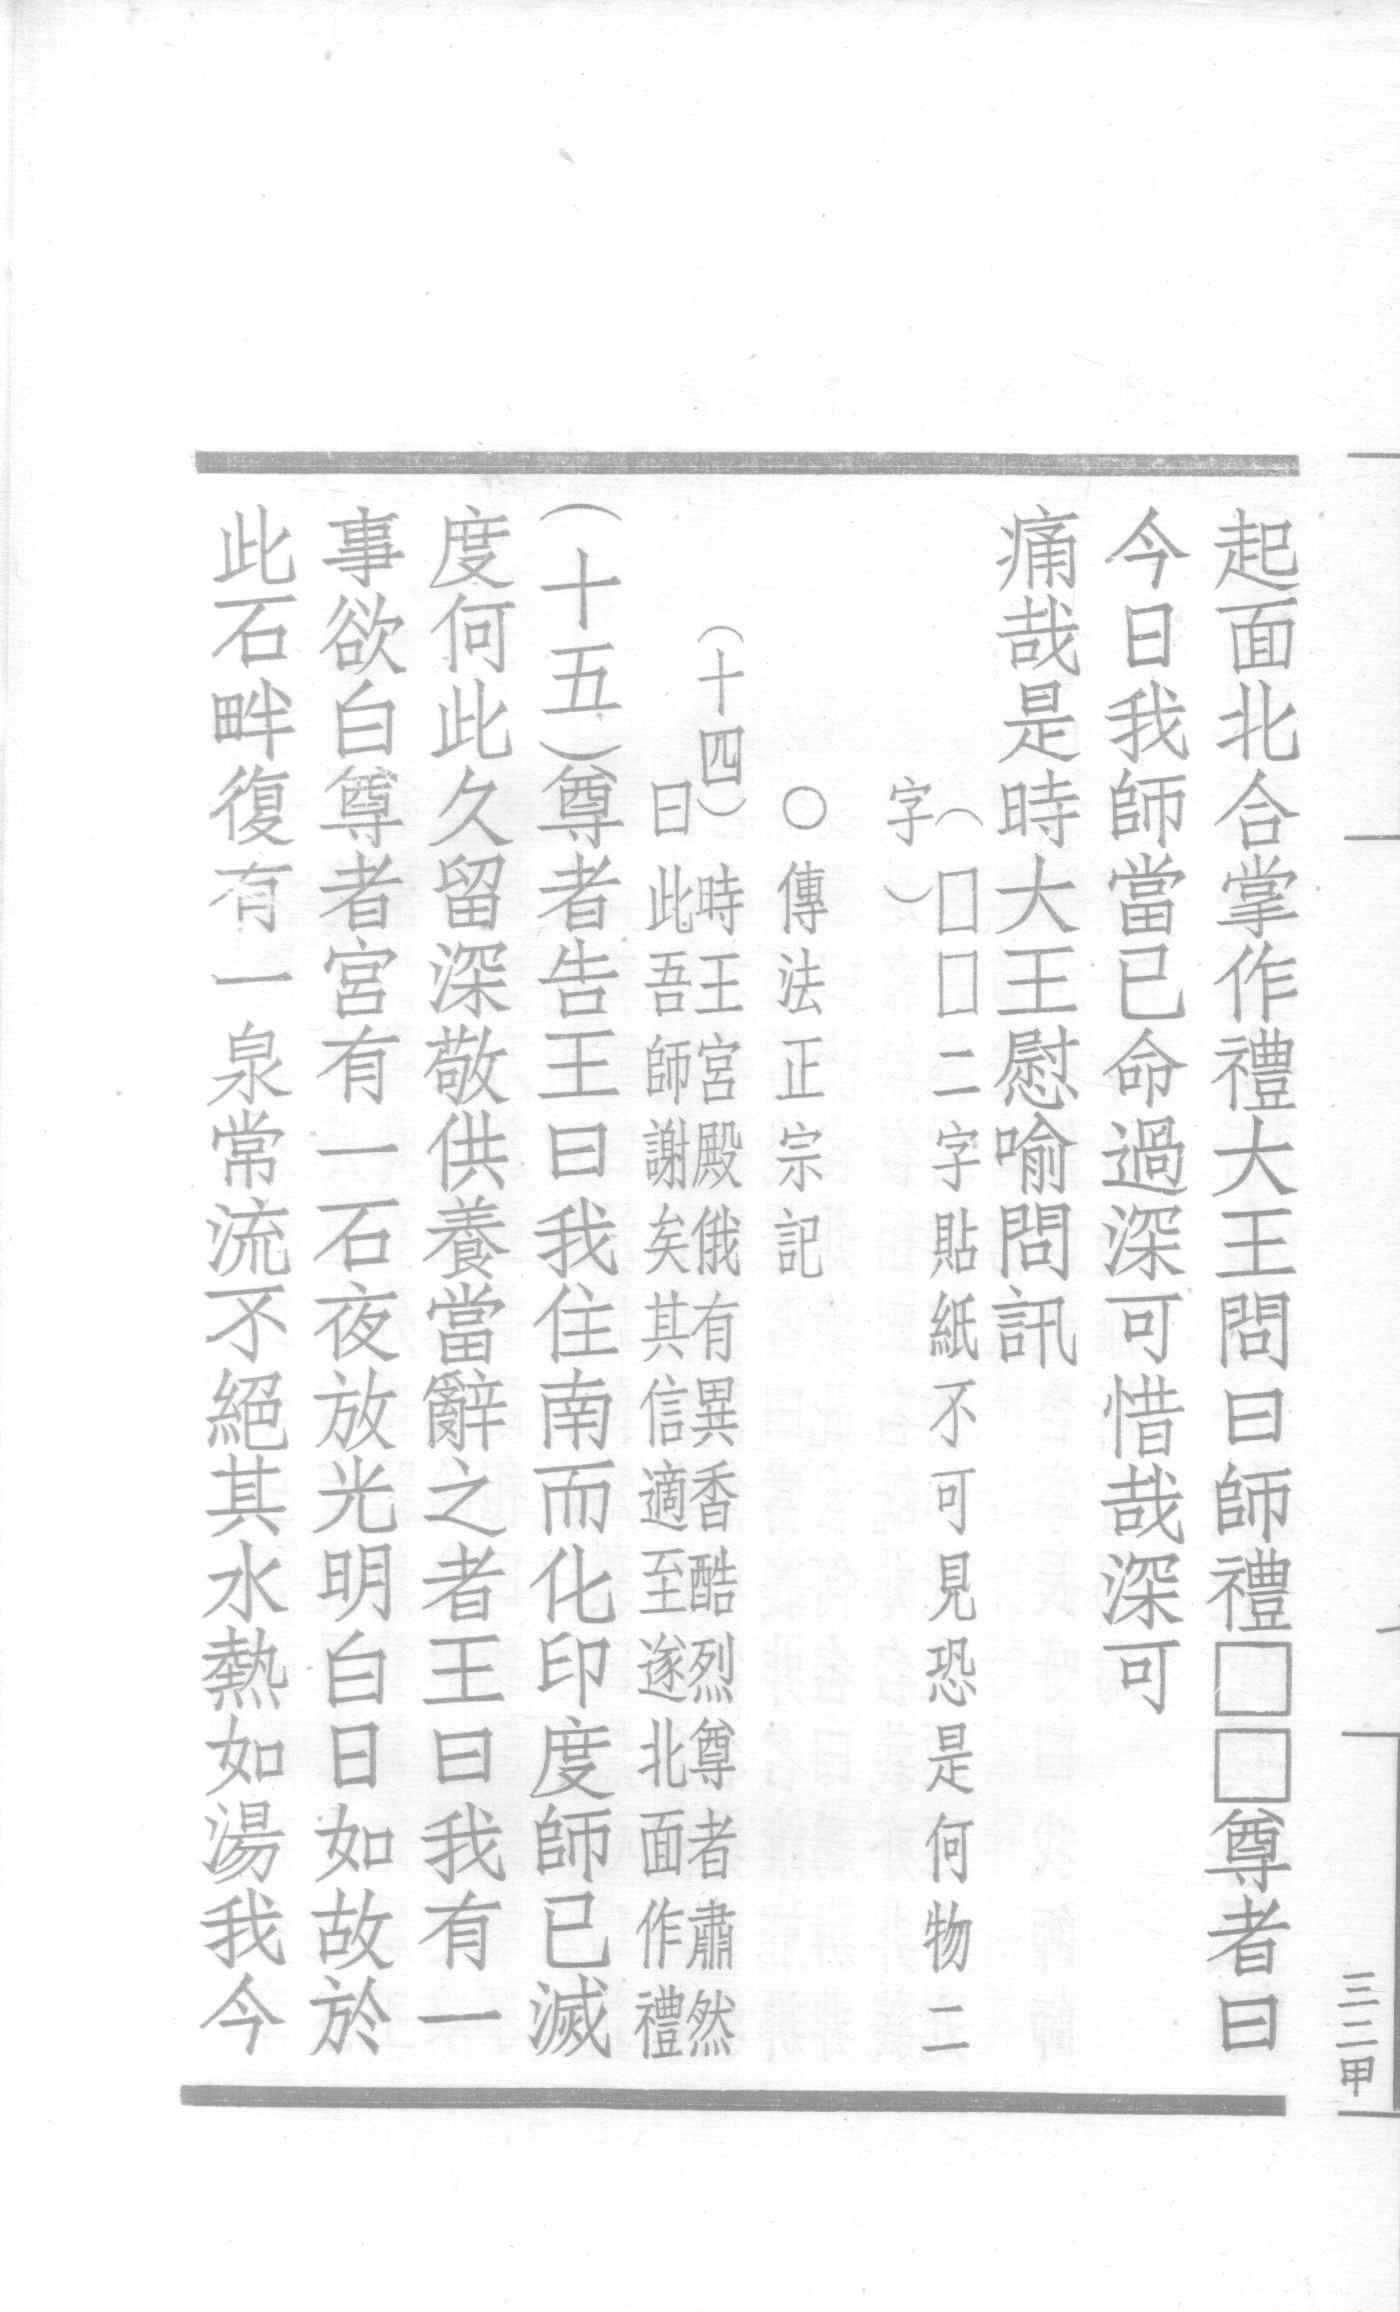 起面北合掌作禮大王問曰師禮□□尊者曰
今日我師當已命過深可惜哉深可
痛哉是時大王慰喻問訊
（□□二字貼紙不可見恐是何物二
字）
○傳法正宗記
（十四）時王宮殿俄有異香酷烈尊者肅然
曰此吾師謝矣其信適至遂北面作禮
（十五）尊者告王曰我住南而化印度師已滅
度何此久留深敬供養當辭之者王曰我有一
事欲白尊者宮有一石夜放光明白日如故於
此石畔復有一泉常流不絕其水熱如湯我今
三二甲